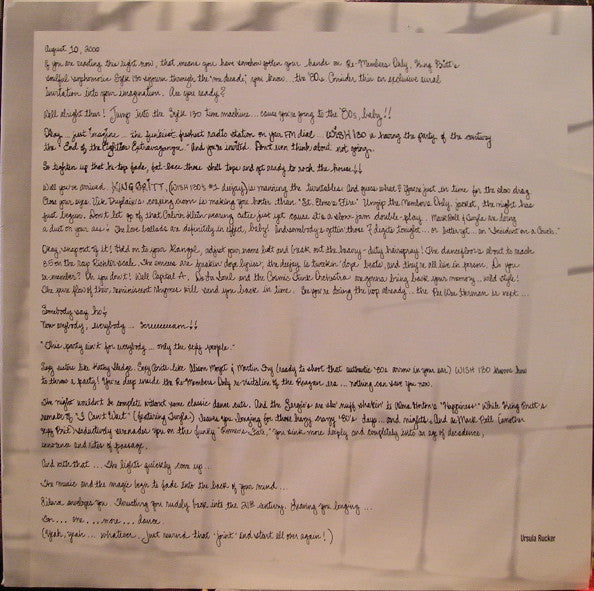 August 10, 2000
If you are reading this right now, that means you have somehow gotten your hands on Re-Members Only, King Britt's
soulful symphonic Sylk 130 sojourn through the "me decade," you know... the '80s. Consider this an exclusive aural
invitation into your imagination. Are you ready?
Well alright then! Jump into the Sylk 130 time machine... cause you're going to the '80s, baby!!
Okay... just imagine... the funkiest, freshest radio station on your FM dial... WISH 130 is having the party of the century
the "End of the Eighties Extravaganza." And you're invited. Don't even think about not going.
So tighten up that hi-top fade, fat-lace those shell tops and get ready to rock the house!!
Well you've arrived. KING BRITT, (WISH 130's #1 deejay) is manning the turntables. And guess what? You're just in time for the slow drag.
Close your eyes. Vikter Duplaix's crooning is making you hotter than "St. Elmo's Fire." Unzip the Members Only jacket, the night has
just begun. Don't let go of that Calvin Klein wearing cutie just yet cause it's a slow-jam double-play. Mark Bell & are doing
a duet on your ass! The love ballads are definitely in effect, baby! And somebody's gettin' those 7 digits tonight... or better yet... an "Incident on a Couch."
Okay, snap out of it! Hold on to your Kangol, adjust your name belt and bask out the heavy-duty hairspray! The dancefloor's about to reach
8.5 on the rap Richter scale. The emcees are freakin' dope lyrics, the deejay is tweakin' dope beats, and they're all live in person. Do you
re-member? Oh you don't! Well Capital A, De La Soul and the Cosmic Funk Orchestra are gonna bring back your memory... wild style!
The pure flow of their reminiscent rhymes will send you back in time. See you're doing the wop already... the Pee Wee Herman is next...
Somebody say ho!
Now anybody, everybody... Screeeeeeam!!
"This party ain't for everybody... only the sexy people."
Sexy sistas like Kathy Sledge. Sexy like Alison Moyet & Martin Fry (ready to shoot that authentic '80s arrow in your ear) WISH 130 knows how
to throw a party! You're deep inside the Re-Members Only re-visitation of the Reagan era... nothing can save you now.
The night wouldn't be complete without some classic dance cuts. And the Sergio's are also ruff shakin' to Alma Horton's "Happiness" While King Britt's
remake of "I Can't Wait" (featuring) leaves you longing for those hazy crazy '80's days... and nights. And as Mark Bell
seductively serenades you on the funky "Romeo's Fate," you sink more deeply and completely into an age of decadence,
innocence and rites of passage.
And with that... The lights quickly come up...
The music and the magic begin to fade into the back of your mind...
Silence envelopes you. Thrusting you rudely back into the 21st century. Leaving you longing...
for... one... more... dance.
(Yeah, yeah... whatever. Just rewind that 'joint' and start all over again!)
Ursula Rucker